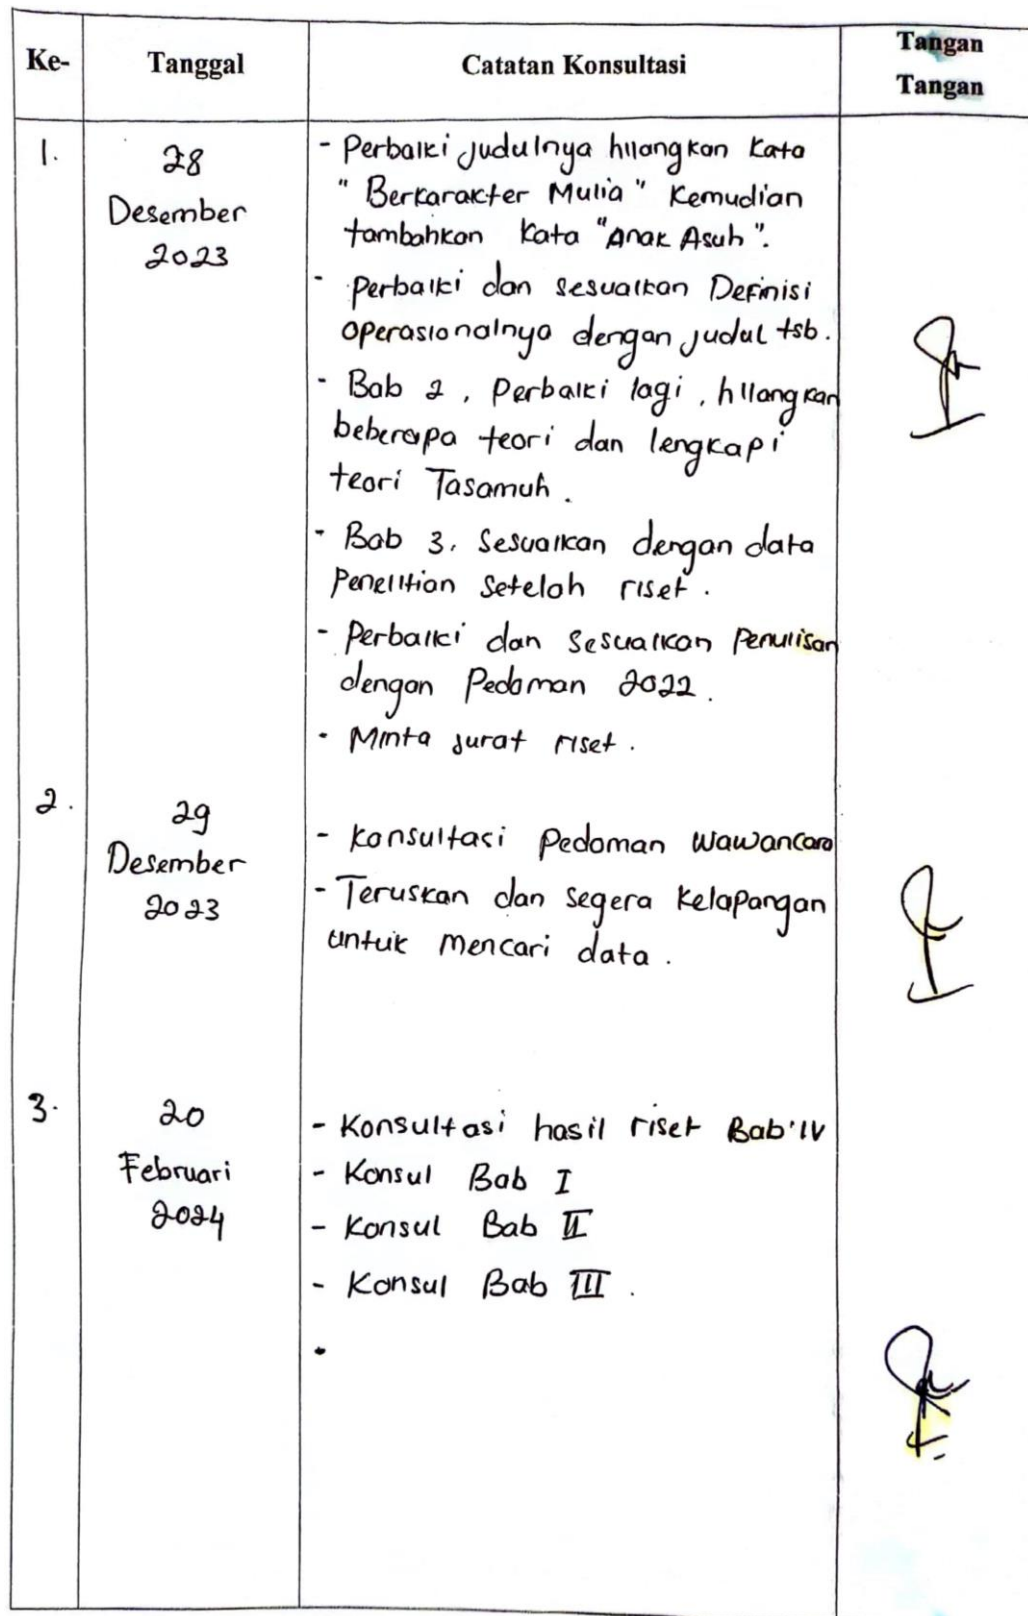 Ke-
Tanggal
Catatan Konsultasi
Tangan
Tangan
1.
28
Desember
2023
- Perbaiki judulnya hilangkan kata
"Berkarakter Mulia" kemudian
tambahkan kata "Anak Asuh".
- perbaiki dan sesuaikan Definisi
operasionalnya dengan judul tsb.
- Bab 2, Perbaiki lagi, hilangkan
beberapa teori dan lengkapi
teori Tasamuh.
- Bab 3. Sesuaikan dengan data
Penelitian Setelah riset.
- Perbaiki dan Sesuaikan Penulisan
dengan Pedoman 2022.
- Minta surat riset.
2.
29
Desember
2023
- konsultasi Pedoman Wawancara
- Teruskan dan segera kelapangan
untuk mencari data.
3.
20
Februari
2024
- Konsultasi hasil riset Bab IV
- Konsul Bab I
- Konsul Bab II
- Konsul Bab III.
-